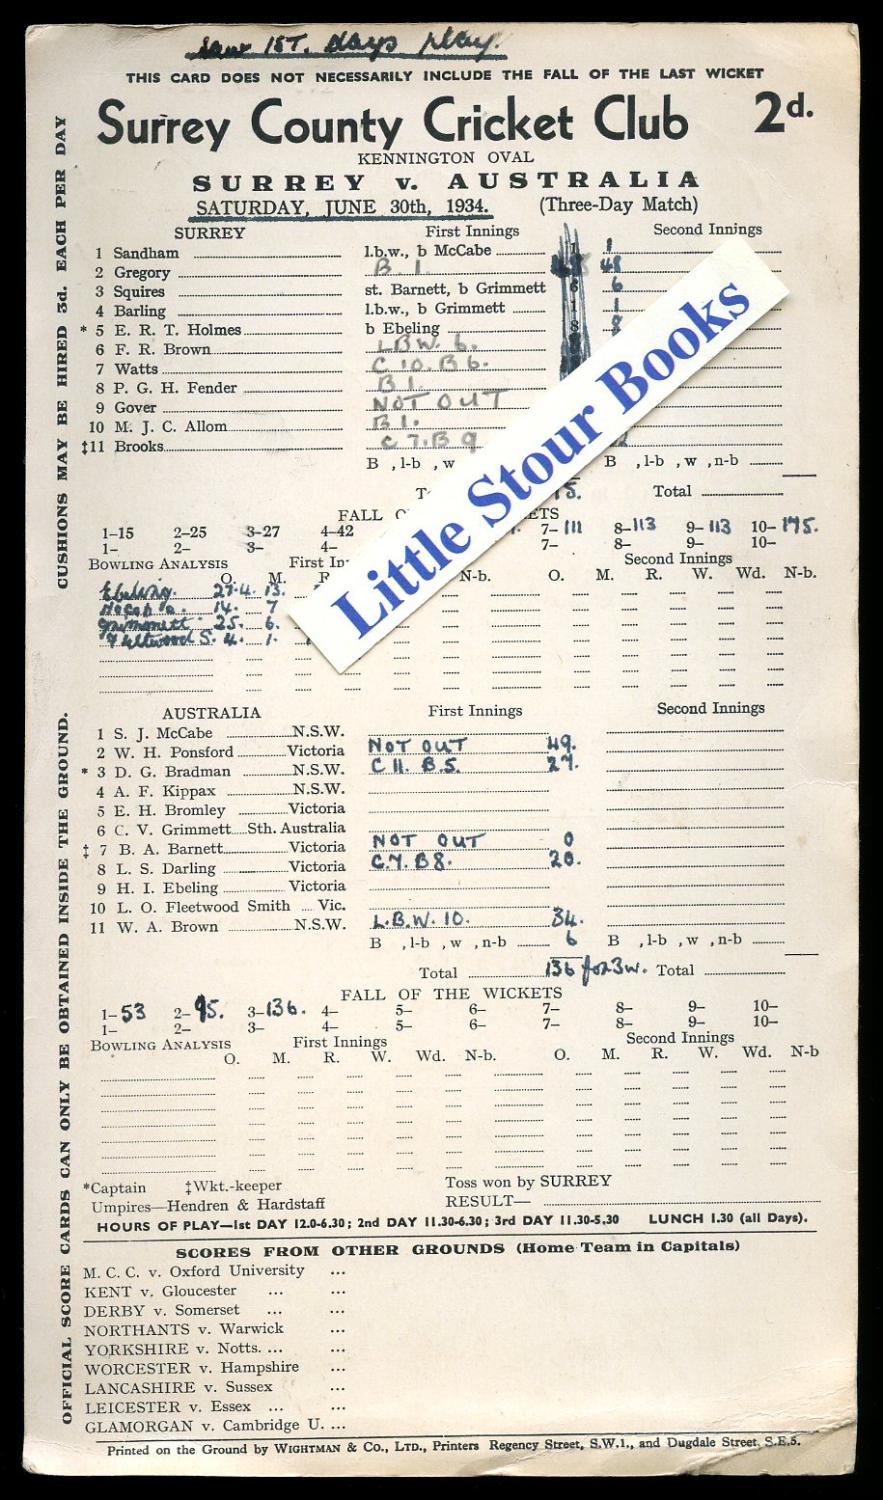 saw 1ST. days play.
THIS CARD DOES NOT NECESSARILY INCLUDE THE FALL OF THE LAST WICKET
Surrey County Cricket Club 2d.
KENNINGTON OVAL
SURREY v. AUSTRALIA
SATURDAY, JUNE 30th, 1934. (Three-Day Match)
SURREY First Innings Second Innings
1 Sandham l.b.w., b McCabe 1 1
2 Gregory B. 1. 48
3 Squires st. Barnett, b Grimmett 6 6
4 Barling l.b.w., b Grimmett 1 1
* 5 E. R. T. Holmes b Ebeling 8 8
6 F. R. Brown L.B.W. 6.
7 Watts C 10. B 6.
8 P. G. H. Fender B 1.
9 Gover NOT OUT
10 M. J. C. Allom B 1.
‡11 Brooks C 7. B 9
B , l-b , w B , l-b , w , n-b
5. Total
FALL
1-15 2-25 3-27 4-42 7-111 8-113 9-113 10-175.
1- 2- 3- 4- 7- 8- 9- 10-
BOWLING ANALYSIS First Second Innings
O. M. R. N-b. O. M. R. W. Wd. N-b.
Ebeling. 27.4. 13.
McCabe. 14. 7
Grimmett 25. 6.
Fleetwood S. 4. 1.
Little Stour Books
AUSTRALIA First Innings Second Innings
1 S. J. McCabe N.S.W.
2 W. H. Ponsford Victoria NOT OUT 49.
* 3 D. G. Bradman N.S.W. C 11. B.5. 27.
4 A. F. Kippax N.S.W.
5 E. H. Bromley Victoria
6 C. V. Grimmett Sth. Australia
‡ 7 B. A. Barnett Victoria NOT OUT 0
8 L. S. Darling Victoria C.7. B8. 20.
9 H. I. Ebeling Victoria
10 L. O. Fleetwood Smith Vic.
11 W. A. Brown N.S.W. L.B.W. 10. 34.
B , l-b , w , n-b 6 B , l-b , w , n-b
Total 136 for 3w. Total
FALL OF THE WICKETS
1-53 2-95. 3-136. 4- 5- 6- 7- 8- 9- 10-
1- 2- 3- 4- 5- 6- 7- 8- 9- 10-
BOWLING ANALYSIS First Innings Second Innings
O. M. R. W. Wd. N-b. O. M. R. W. Wd. N-b
*Captain ‡Wkt.-keeper Toss won by SURREY
Umpires—Hendren & Hardstaff RESULT—
HOURS OF PLAY—1st DAY 12.0-6.30; 2nd DAY 11.30-6.30; 3rd DAY 11.30-5.30 LUNCH 1.30 (all Days).
SCORES FROM OTHER GROUNDS (Home Team in Capitals)
M. C. C. v. Oxford University ...
KENT v. Gloucester ... ...
DERBY v. Somerset ... ...
NORTHANTS v. Warwick ...
YORKSHIRE v. Notts. ... ...
WORCESTER v. Hampshire ...
LANCASHIRE v. Sussex ...
LEICESTER v. Essex ... ...
GLAMORGAN v. Cambridge U. ...
Printed on the Ground by WIGHTMAN & Co., LTD., Printers Regency Street, S.W.1., and Dugdale Street, S.E.5.
OFFICIAL SCORE CARDS CAN ONLY BE OBTAINED INSIDE THE GROUND. CUSHIONS MAY BE HIRED 3d. EACH PER DAY